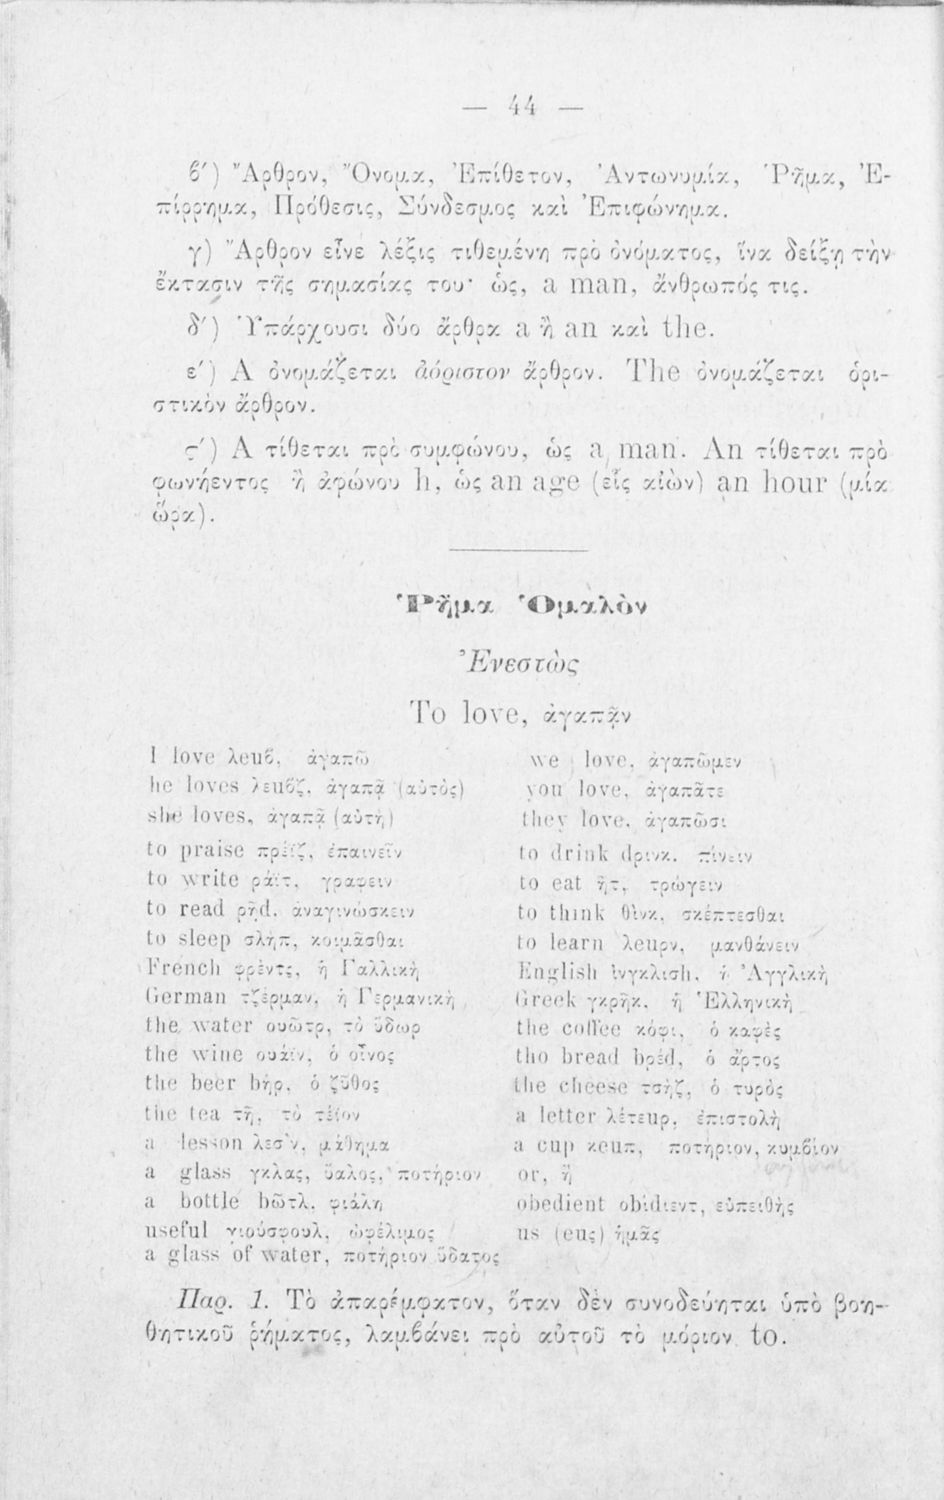 — 44 —
ϐ′) Ἄρθρον, Ὄνομα, Ἐπίθετον, Ἀντωνυμία, Ῥῆμα, Ἐ-
πίρρημα, Πρόθεσις, Σύνδεσμος καὶ Ἐπιφώνημα.
γ) Ἄρθρον εἶνε λέξις τιθεμένη πρὸ ὀνόματος, ἵνα δείξῃ τὴν
ἔκτασιν τῆς σημασίας του· ὡς, a man, ἄνθρωπός τις.
δ′) Ὑπάρχουσι δύο ἄρθρα a ἢ an καὶ the.
ε′) A ὀνομάζεται ἀόριστον ἄρθρον. The ὀνομάζεται ὁρι-
στικὸν ἄρθρον.
ς′) A τίθεται πρὸ συμφώνου, ὡς a man. An τίθεται πρὸ
φωνήεντος ἢ ἀφώνου h, ὡς an age (εἷς αἰὼν) an hour (μία
ὥρα).
Ῥῆμα Ὁμαλὸν
Ἐνεστὼς
To love, ἀγαπᾷν
I love λευϐ, ἀγαπῶ
he loves λευϐζ, ἀγαπᾷ (αὐτὸς)
she loves, ἀγαπᾷ (αὐτὴ)
to praise πρέϊζ, ἐπαινεῖν
to write ράϊτ, γραφειν
to read ρῆd, ἀναγινώσκειν
to sleep σλὴπ, κοιμᾶσθαι
French φρέντς, ἡ Γαλλικὴ
German τζέρμαν, ἡ Γερμανικὴ
the water ουῶτρ, τὸ ὕδωρ
the wine ουάϊν, ὁ οἶνος
the beer bὴρ, ὁ ζῦθος
the tea τῆ, τὸ τέϊον
a lesson λεσ'ν, μάθημα
a glass γκλας, ὕαλος, ποτήριον
a bottle bῶτλ, φιάλη
useful γιούσφουλ, ὠφέλιμος
a glass of water, ποτήριον ὕδατος
we love, ἀγαπῶμεν
you love, ἀγαπᾶτε
they love, ἀγαπῶσι
to drink dρινκ, πίνειν
to eat ῆτ, τρώγειν
to think θὶνκ, σκέπτεσθαι
to learn λευρν, μανθάνειν
English ἰνγκλισh, ἡ Ἀγγλικὴ
Greek γκρὴκ, ἡ Ἑλληνικὴ
the coffee κόφι, ὁ καφὲς
tho bread bρέd, ὁ ἄρτος
the cheese τσὴζ, ὁ τυρὸς
a letter λέτευρ, ἐπιστολὴ
a cup κευπ, ποτήριον, κυμϐίον
or, ἢ
obedient obίdιεντ, εὐπειθὴς
us (ευς) ἡμᾶς
Παρ. 1. Τὸ ἀπαρέμφατον, ὅταν δὲν συνοδεύηται ὑπὸ βοη-
θητικοῦ ῥήματος, λαμϐάνει πρὸ αὐτοῦ τὸ μόριον to.